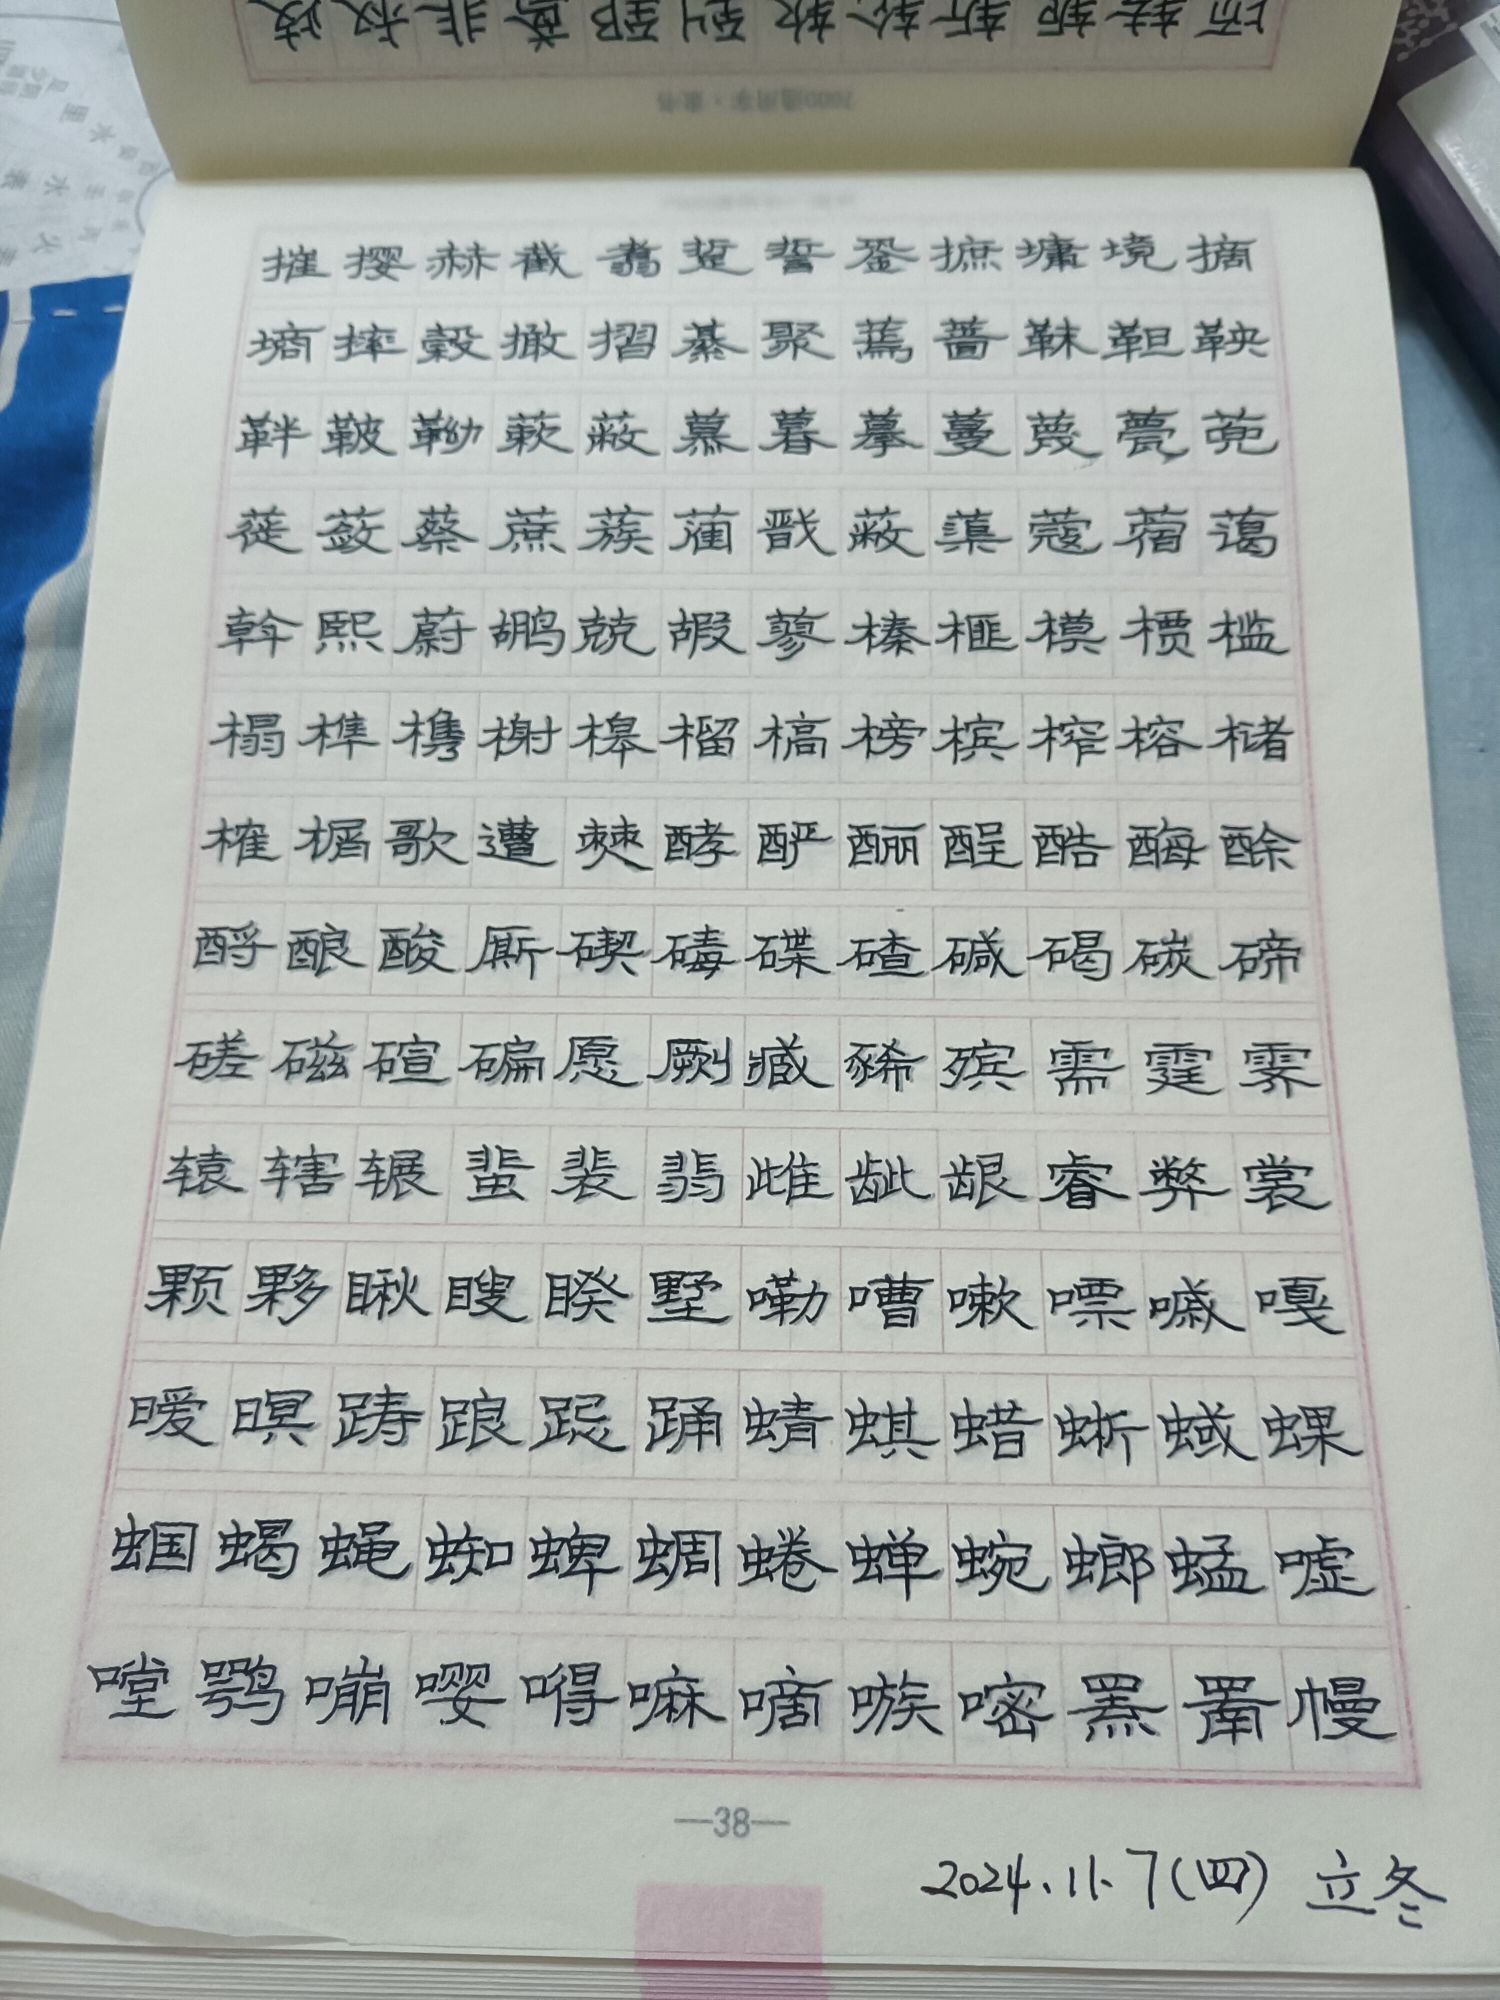 7000通用字·隶书
摧撄赫截翥踅誓銎摭墉境摘
墒摔榖撖摺綦聚蔫蔷靺靼鞅
靽鞁靿蔌蔽慕暮摹蔓蔑甍蔸
蓰蔹蔡蔗蔟蔺戬蔽蕖蔻蓿蔼
斡熙蔚鹕兢嘏蓼榛榧模槚槛
榻榫槜榭槔榴槁榜槟榨榕槠
榷榍歌遭僰酵酽酾酲酷酶酴
酹酿酸厮碶碡碟碴碱碣碳碲
磋磁碹碥愿劂臧豨殡需霆霁
辕辖辗蜚裴翡雌龇龈睿弊裳
颗夥瞅瞍睽墅嘞嘈嗽嘌嘁嘎
暧暝踌踉跽踊蜻蜞蜡蜥蜮蜾
蝈蝎蝇蜘蜱蜩蜷蝉蜿螂蜢嘘
嘡鹗嘣嘤嘚嘛嘀嗾嘧罴罱幔
—38—
2024.11.7(四) 立冬